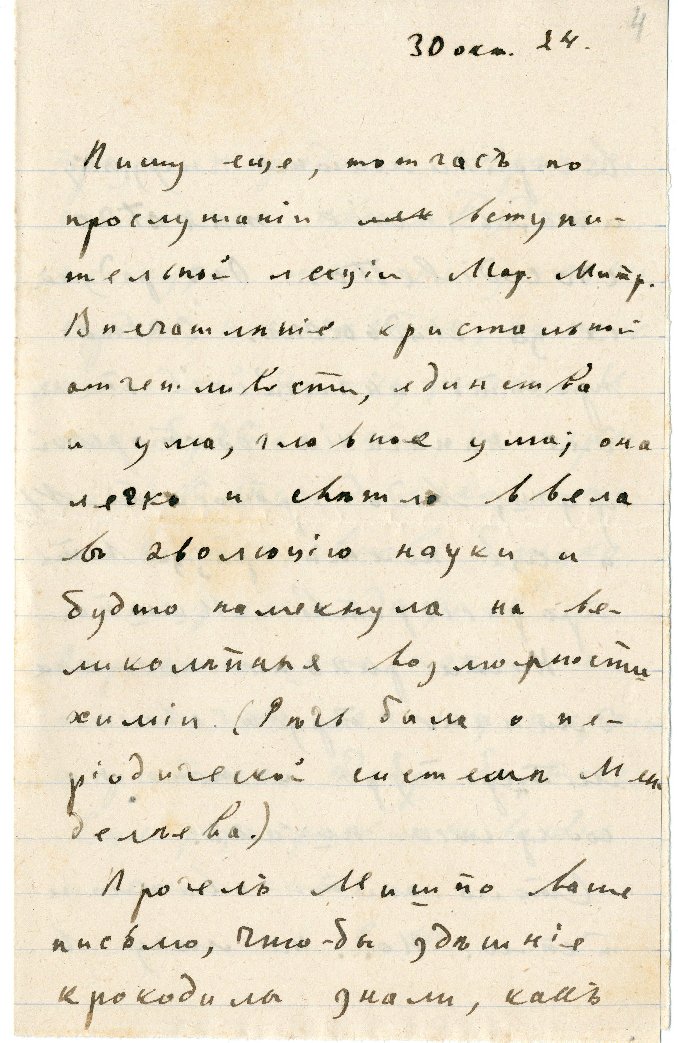 4
30 окт. 24.
Пишу еще, тотчасъ по
прослушанiи вступи-
тельной лекцiи Мар. Митр.
Впечатлѣнiе кристальной
отчетливости, единства
и ума, главное ума; она
легко и свѣтло ввела
въ эволюцiю науки и
будто намекнула на ве-
ликолѣпныя возможности
химiи (Рѣчь была о пе-
рiодической системѣ Мен
делѣева.)
Прочелъ ваше
письмо, что-бы здѣшнiе
крокодилы знали, какъ